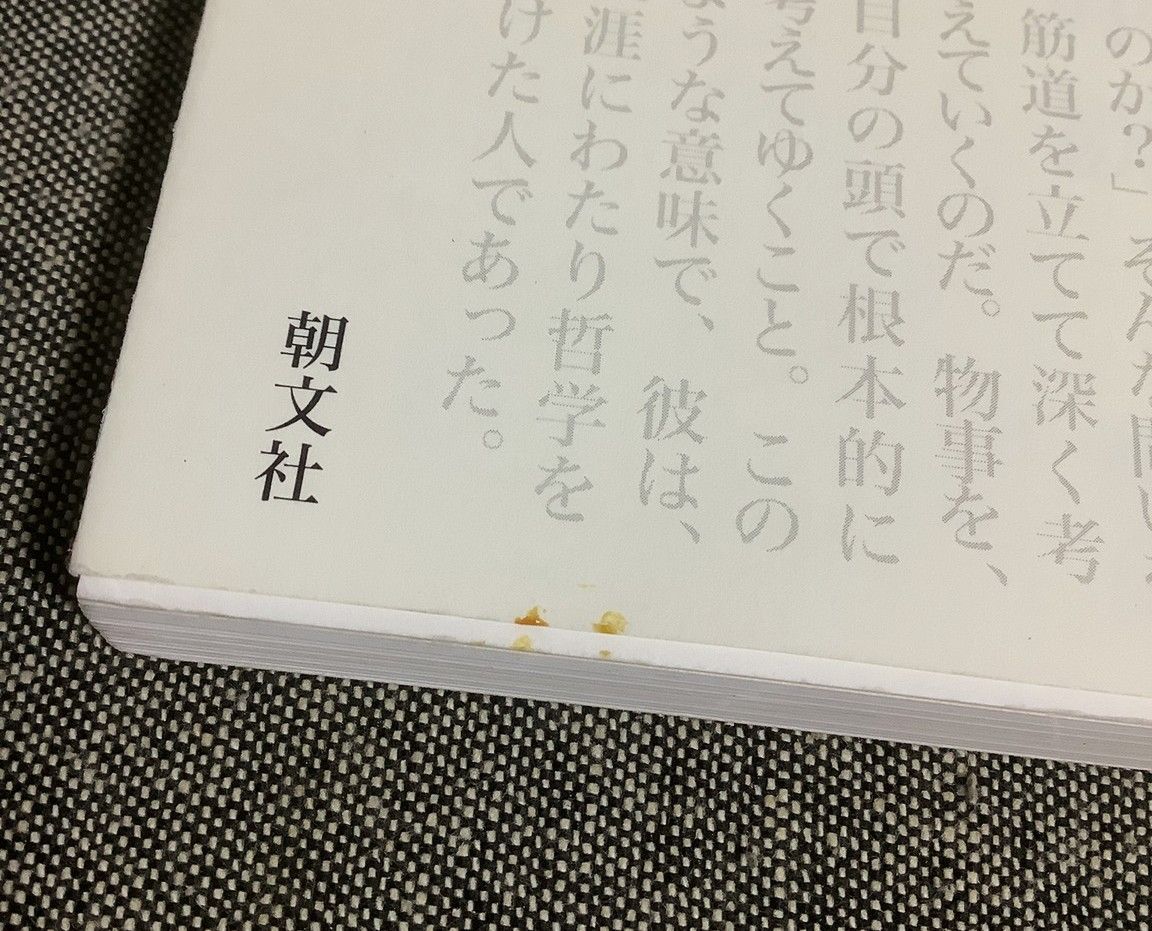 のか？」そんな問い
筋道を立てて深く考
えていくのだ。物事を、
自分の頭で根本的に
考えてゆくこと。この
ような意味で、彼は、
涯にわたり哲学を
けた人であった。
朝文社